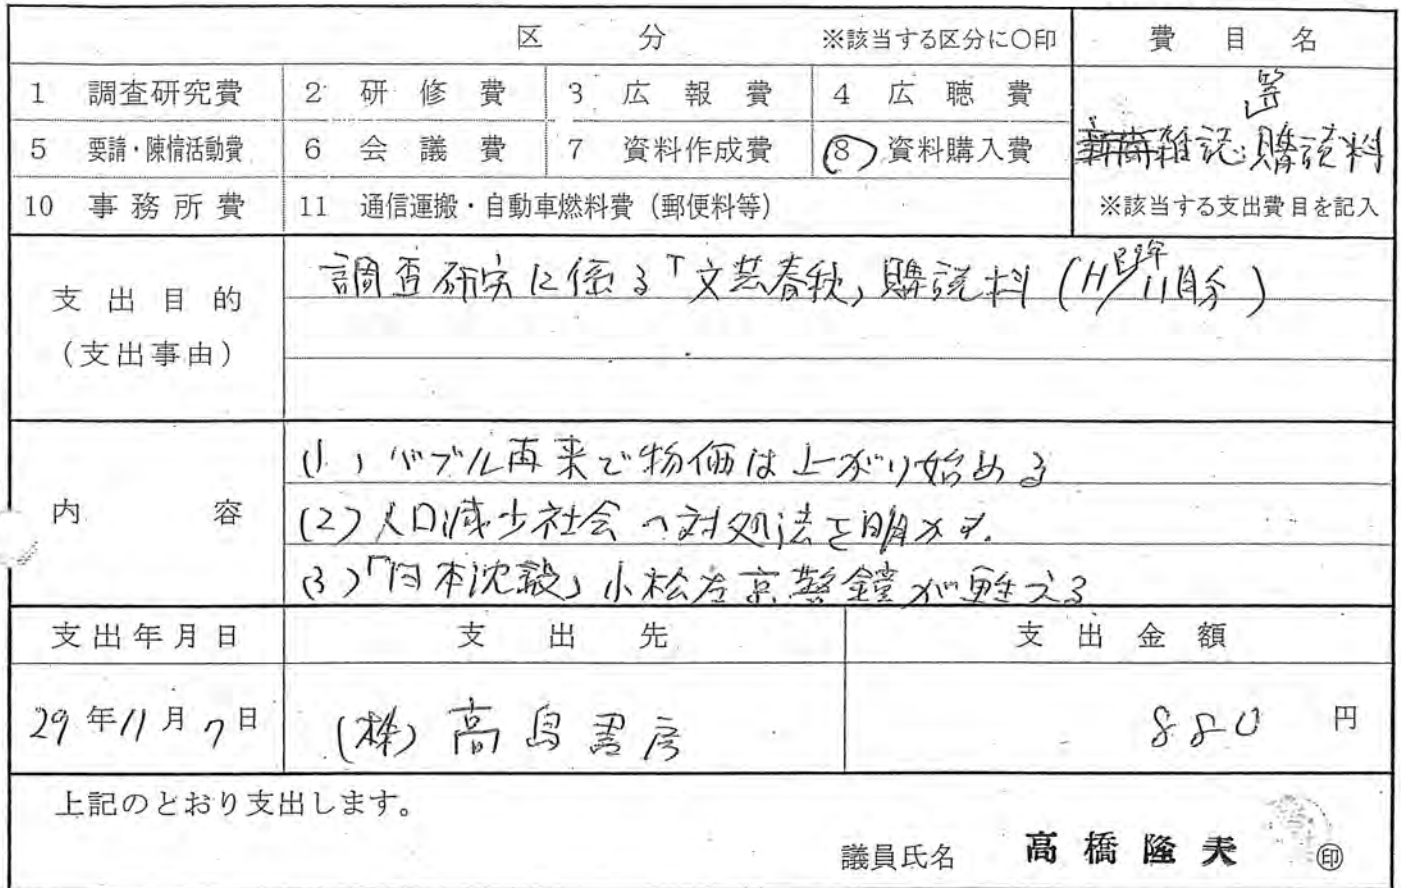 区 分 ※該当する区分に○印 費 目 名
1 調査研究費 2 研 修 費 3 広 報 費 4 広 聴 費
5 要請・陳情活動費 6 会 議 費 7 資料作成費 8 資料購入費 雑誌購読料
10 事務所費 11 通信運搬・自動車燃料費(郵便料等) ※該当する支出費目を記入
支出目的
(支出事由)
調査研究に係る「文芸春秋」購読料(H29年11月分)
内 容
(1)バブル再来で物価は上がり始める
(2)人口減少社会への対処法を明かす.
(3)「日本沈没」小松左京警鐘が甦える
支出年月日 支 出 先 支 出 金 額
29年11月7日 (株)高島書房 880円
上記のとおり支出します。
議員氏名 高橋隆夫 ㊞